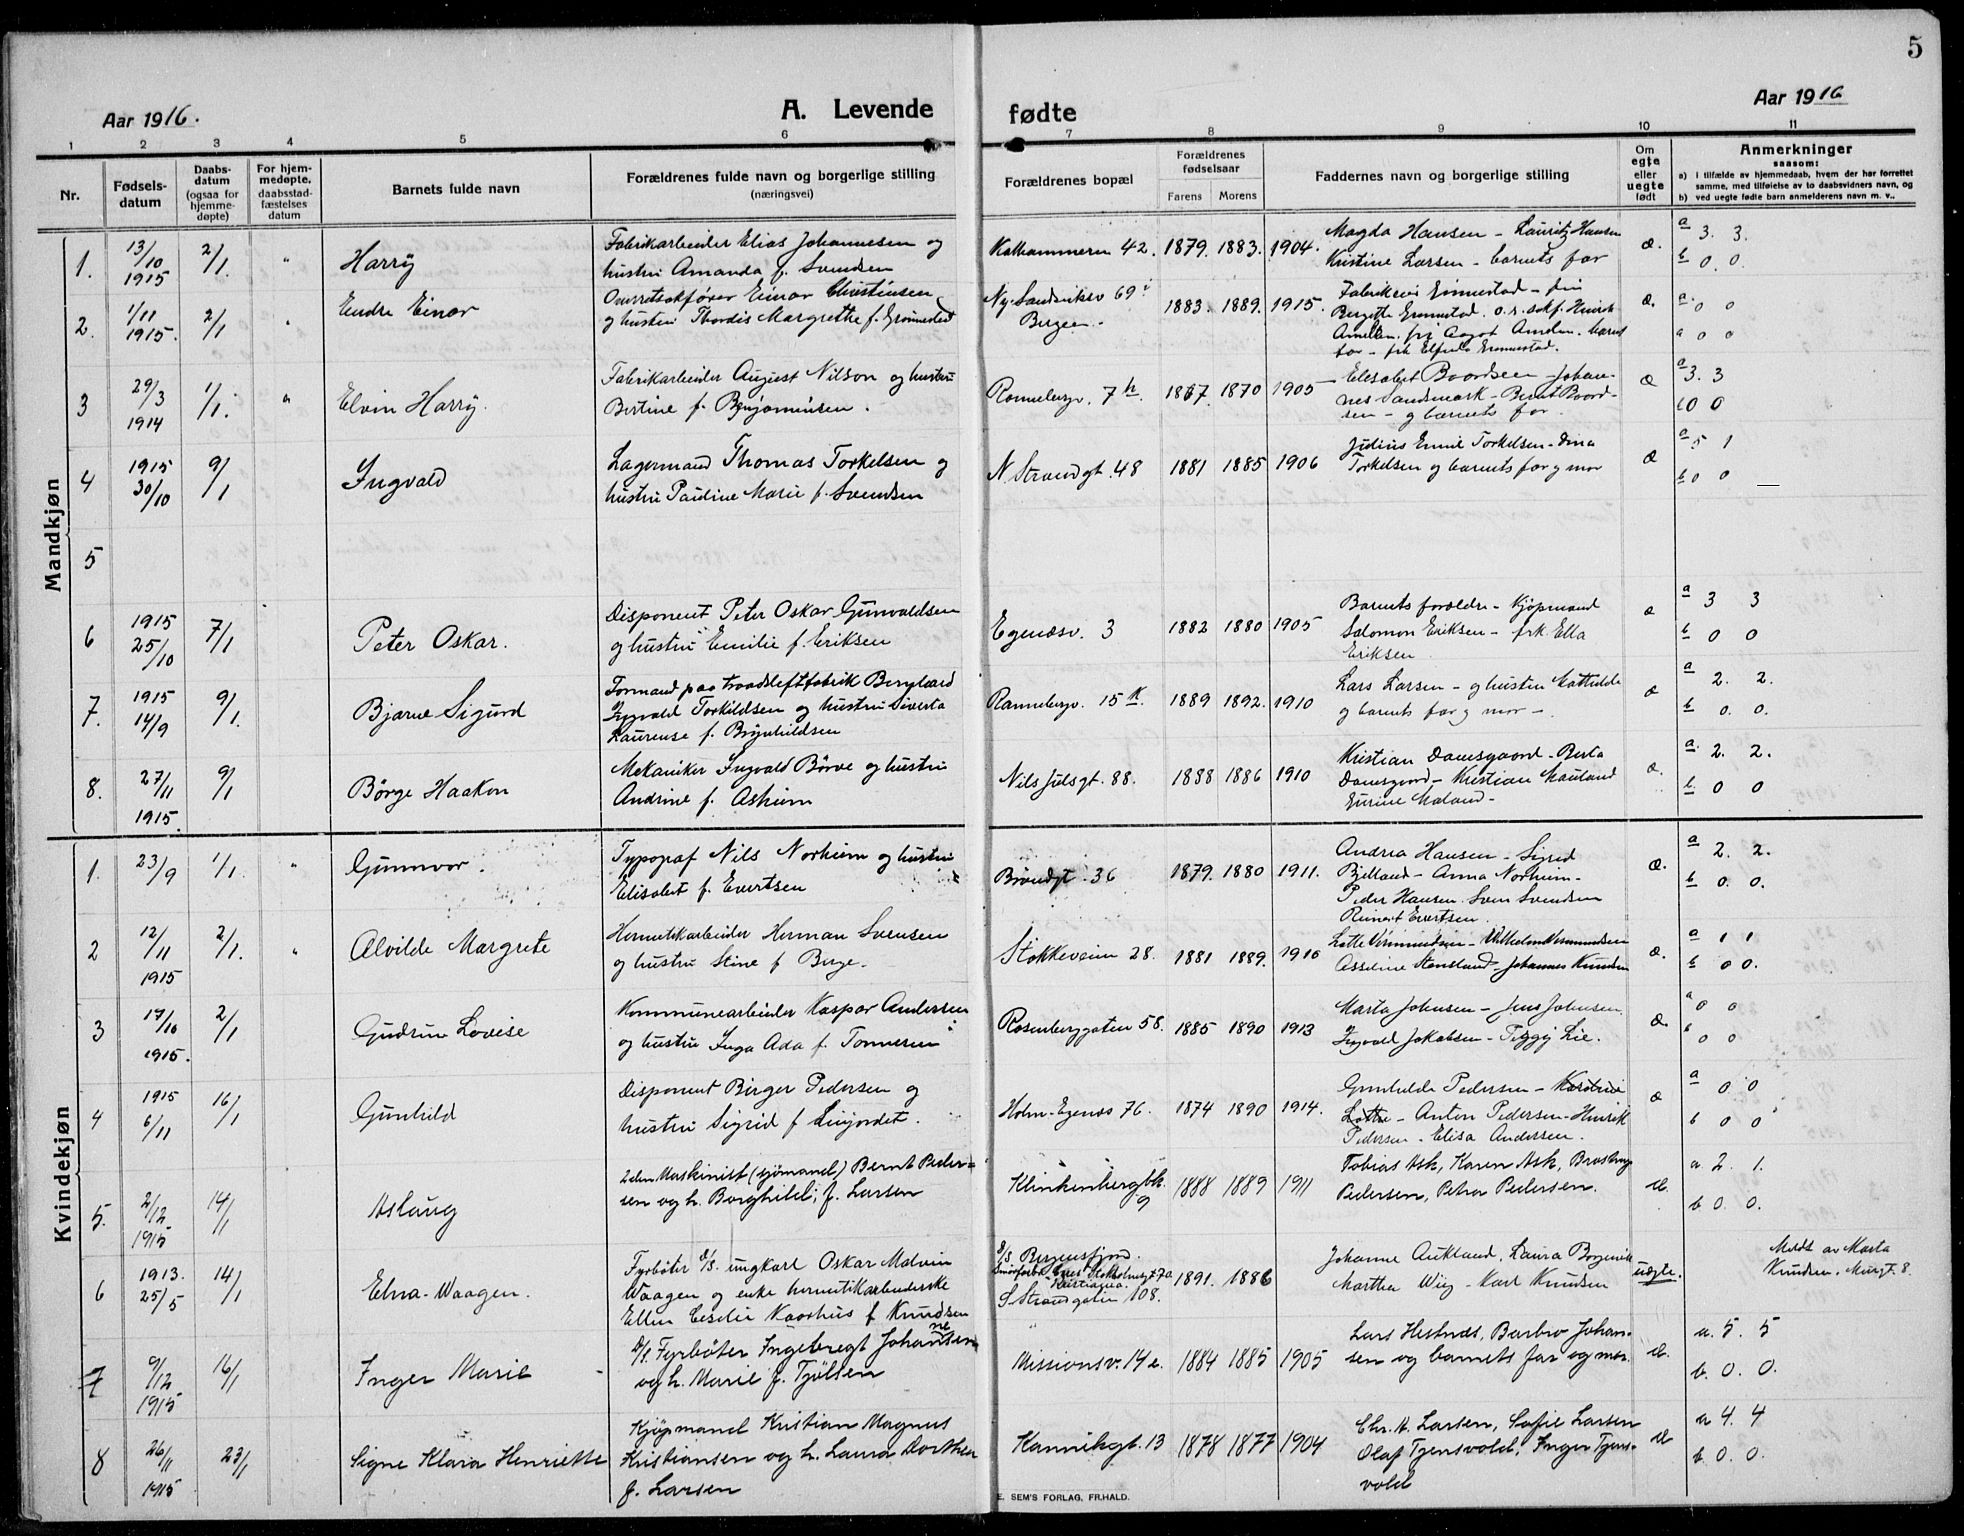 5
Aar 1916.
A. Levende
fødte
Aar 1916
1 2 3 4 5 6 7 8 9 10 11
Nr.
Fødsels-
datum
Daabs-
datum
(ogsaa for
hjemme-
døpte)
For hjem-
medøpte.
daabsstad-
fæstelses
datum
Barnets fulde navn
Forældrenes fulde navn og borgerlige stilling
(næringsvei)
Forældrenes bopæl
Forældrenes
fødselsaar
Farens Morens
Faddernes navn og borgerlige stilling
Om
egte
eller
uegte
født
Anmerkninger
saasom:
a) i tilfælde av hjemmedaab, hvem der har forrettet
samme, med tilføielse av to daabsvidners navn, og
b) ved uegte fødte barn anmelderens navn m. v.,
Mandkjøn
1. 13/10 1915 2/1. " Harry
Fabrikarbeider Elias Johannesen og
hustru Amanda f. Svendsen
Kalhammeren 42. 1879. 1883. 1904.
Magda Hansen - Lauritz Hansen
Kristine Larsen - barnets far
æ. a 3. 3.
b 0. 0.
2. 1/11 1915. 2/1 " Endre Einar
Overretssakfører Einar Christensen
og hustru Thordis Margrethe f. Grønnestad
Ny. Sandviksv 69
Bergen.
1883. 1889. 1915.
æ. a. 0 0
a 0 0
3 29/3 1914 1/1. " Elvin Harry.
Fabrikarbeider August Nilson og hustru
Bertine f. Benjaminsen.
Ramnebergv. 7 h. 1867. 1870 1905
Elesabet Boordsen - Johan-
nes Sandsmark - Berent Boord-
sen - og barnets far.
æ a 3. 3
b 0 0
4 1915 30/10 9/1 Ingvald
Lagermand Thomas Torkelsen og
hustru Pauline Marie f. Svendsen
N. Strandgt. 48 1881 1885 1906
Julius Emil Torkelsen - Dina
Torkelsen og barnets far og mor
æ a 5 1
b 0 0
5
6 1915 25/10 7/1 Peter Oskar.
Disponent Peter Oskar Gunvaldsen
og hustru Emilie f. Eriksen
Egenæsv. 3 1882 1880 1905
Barnets forældre - Kjøpmand
Salomon Eriksen - frk. Ella
Eriksen
æ a 3 3
b 0 0
7. 1915 14/9 9/1. Bjarne Sigurd
Formand paa traadsleftfabrik Berglard
Ingvald Torkildsen og hustru Siverta
Laurense f. Brynhildsen
Ramnebergv. 15 K. 1889 1892. 1910
Lars Larsen - og hustru Mathilde
og barnets far og mor -.
æ a 2. 2.
b 0. 0.
8. 27/11 1915. 9/1 Børge Haakon
Mekaniker Ingvald Børve og hustru
Andrine f. Asheim
Nils Julsgt. 88. 1888 1886 1910
Kristian Danesgaard - Berta
Danesgaard - Kristian Mauland
Eurine Maland -
æ. a. 2. 2.
b. 0 0
Kvindekjøn
1. 23/9 1/1. " Gunnvor.
Typograf Nils Norheim og hustru
Elisabet f. Evertsen
Brøndgt. 36 1879. 1880 1911.
Andrea Hansen - Sigrid
Bjelland - Anna Norheim -
Peder Hansen. Sven Svendsen
Reinert Evertsen.
æ. a 2. 2.
b 0. 0.
2 12/11 1915 2/1. " Alvilde Margrete
Hermetikarbeider Herman Svensen
og hustru Stine f Berge.
Stokkeveien 28. 1881 1889. 1916
Lotte Vermundsen - Vilhelm Vermundsen
Asseline Stensland - Johannes Knudsen
æ. a 1 1
b 0 0.
3 17/10 1915. 2/1 Gudrun Lovise
Kommunearbeider Kaspar Andersen
og hustru Inga Ada f. Tønnesen
Rosenberggaten 58. 1885 1890 1913
Marta Johnsen - Jens Johnsen
Ingvald Jakobsen - Peggy Lie.
æ. a 0 0
b 0 0
4 1915 6/11 16/1 Gunhild
Disponent Birger Pedersen og
hustru Sigrid f Linjordet.
Holm-Egenæs 76. 1874 1890 1914.
Gunhilde Pedersen - Katrine
Lothe - Anton Pedersen - Henrik
Pedersen - Elisa Andersen.
æ a 0 0
b 0 0
5. 2/12. 1915 14/1 Aslaug
2den Maskinist (sjømand) Bernt Peder-
sen og h. Borghild, f. Larsen
Klinkenbergbk.
9
1888 1889 1911
Tobias Ask, Karen Ask,
Pedersen, Petra Pedersen.
æ. a. 2. 1.
b 0. 0.
6 1913. 25/5 14/1 Elna Waagen.
Fyrbøter d/s. ungkarl Oskar Malvin
Waagen og enke hermetikarbeiderske
Ellen Cesilie Kaarhus f Knudsen
D/S Bergensfjord.
Kristiania.
S. Strandgaten 108.
1891. 1886
Johanne Aukland, Laura
Marthea Wiig - Karl Knudsen
uegte.
Meldt av Marta
Knudsen, Murgt. 8
7 9/12 1915 16/1 Inger Marie
d/s. Fyrbøter Ingebregt Johannesen
og h. Marie f. Tjølsen
Missionsv. 14 e. 1884 1885 1905
Lars Hestnæs, Barbro Johan-
sen og barnets far og mor.
æ. a. 5. 5
b. 0. 0.
8 26/11 1915 23/1 Signe Klara Henriette
Kjøpmand Kristian Magnus
Kristiansen og h. Laura Dorthea
f. Larsen
Kannikgt. 13 1878 1877 1904
Chr. A. Larsen, Sofie Larsen
Olaf Tjensvold, Inger Tjens-
vold
æ a 4. 4
b 0. 0.
E. SEM'S FORLAG, FR.HALD.